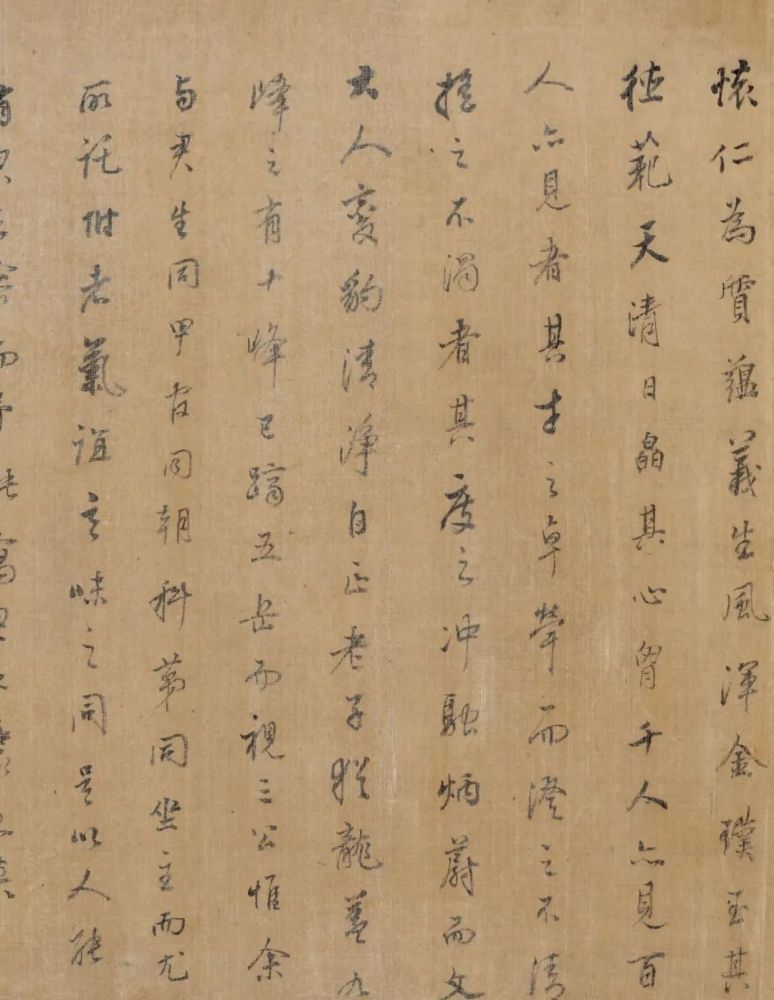 懷仁為質蘊義生風渾金璞玉其
德範天清日晶其心胸千人亦見百
人亦見者其才之卓犖而澄之不清
撓之不濁者其度之沖融炳蔚而文
大人變豹清淨自正老子猶龍蓋九
峰之有十峰已躋五岳而視三公惟余
与君生同甲宦同朝科第同坐主而尤
所託附者氣誼之味之同是以人能